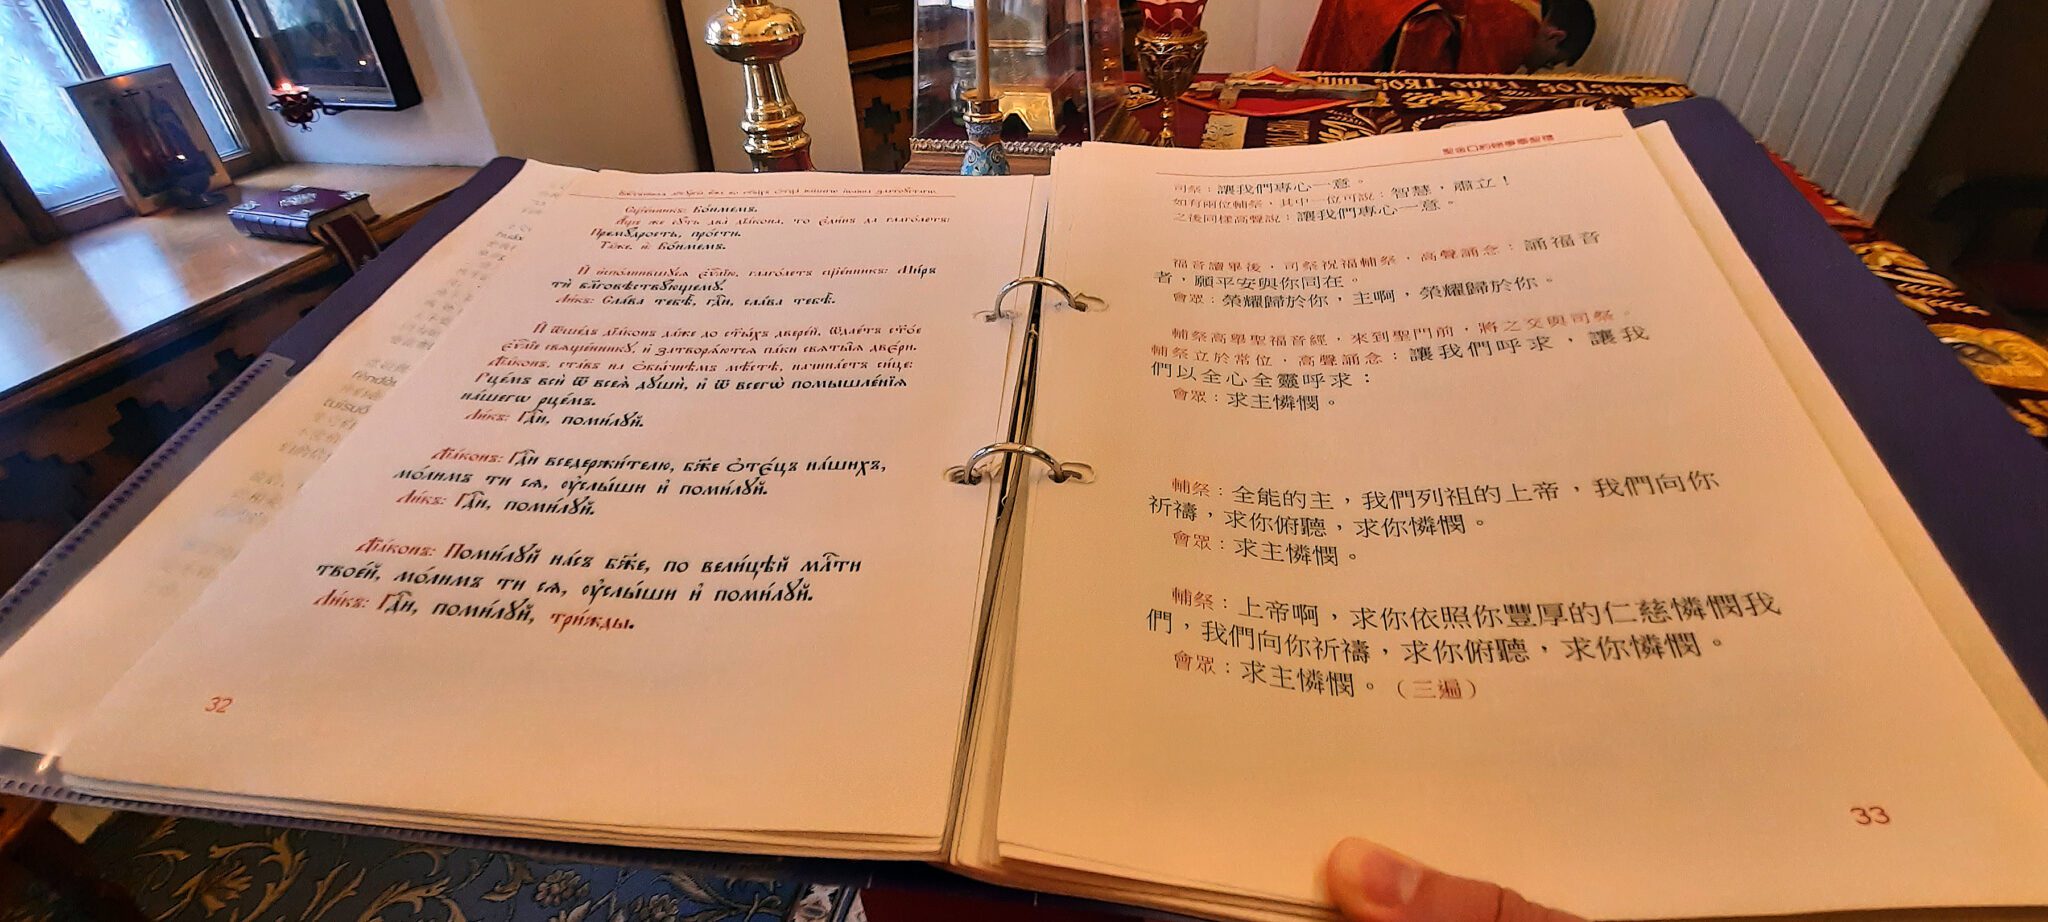 Сщ҃е́нникъ: Во́нмемъ.
А҆́ще же сꙋ́ть два̀ дїа́кѡна, то є҆ди́нъ да глаго́летъ:
Премⷣрость, про́сти.
Та́же, и҆: Во́нмемъ.
И҆ и҆спо́лнившꙋсѧ є҆ѵⷢ҇лїю, глаго́летъ сщ҃е́нникъ: Ми́ръ
тѝ бл҃говѣствꙋ́ющемꙋ.
Ли́къ: Сла́ва тебѣ̀, гдⷭ҇и, сла́ва тебѣ̀.
И҆ ѿше́дъ дїа́конъ да́же до ст҃ы́хъ двере́й, ѿдае́тъ ст҃о́е
є҆ѵⷢ҇лїе свѧще́нникꙋ, и҆ затворѧ́ютсѧ па́ки свѧты̑ѧ двє́ри.
Дїа́конъ, ста́въ на ѻ҆бы́чнѣмъ мѣ́стѣ, начина́етъ си́це:
Рце́мъ всѝ ѿ всеѧ̀ дꙋшѝ, и҆ ѿ всегѡ̀ помышле́нїѧ
на́шегѡ рце́мъ.
Ли́къ: Гдⷭ҇и, поми́лꙋй.
Дїа́конъ: Гдⷭ҇и вседержи́телю, бж҃е ѻ҆тє́цъ на́шихъ,
мо́лимъ ти сѧ, ᲂу҆слы́ши и҆ поми́лꙋй.
Ли́къ: Гдⷭ҇и, поми́лꙋй.
Дїа́конъ: Поми́лꙋй на́съ бж҃е, по вели́цѣй млⷭ҇ти
твое́й, мо́лимъ ти сѧ, ᲂу҆слы́ши и҆ поми́лꙋй.
Ли́къ: Гдⷭ҇и, поми́лꙋй, три́жды.
32
聖金口約翰事奉聖禮
司祭：讓我們專心一意。
如有兩位輔祭，其中一位可說：智慧，肅立！
之後同樣高聲說：讓我們專心一意。
福音讀畢後，司祭祝福輔祭，高聲誦念：誦福音
者，願平安與你同在。
會眾：榮耀歸於你，主啊，榮耀歸於你。
輔祭高舉聖福音經，來到聖門前，將之交與司祭。
輔祭立於常位，高聲誦念：讓我們呼求，讓我
們以全心全靈呼求：
會眾：求主憐憫。
輔祭：全能的主，我們列祖的上帝，我們向你
祈禱，求你俯聽，求你憐憫。
會眾：求主憐憫。
輔祭：上帝啊，求你依照你豐厚的仁慈憐憫我
們，我們向你祈禱，求你俯聽，求你憐憫。
會眾：求主憐憫。（三遍）
33